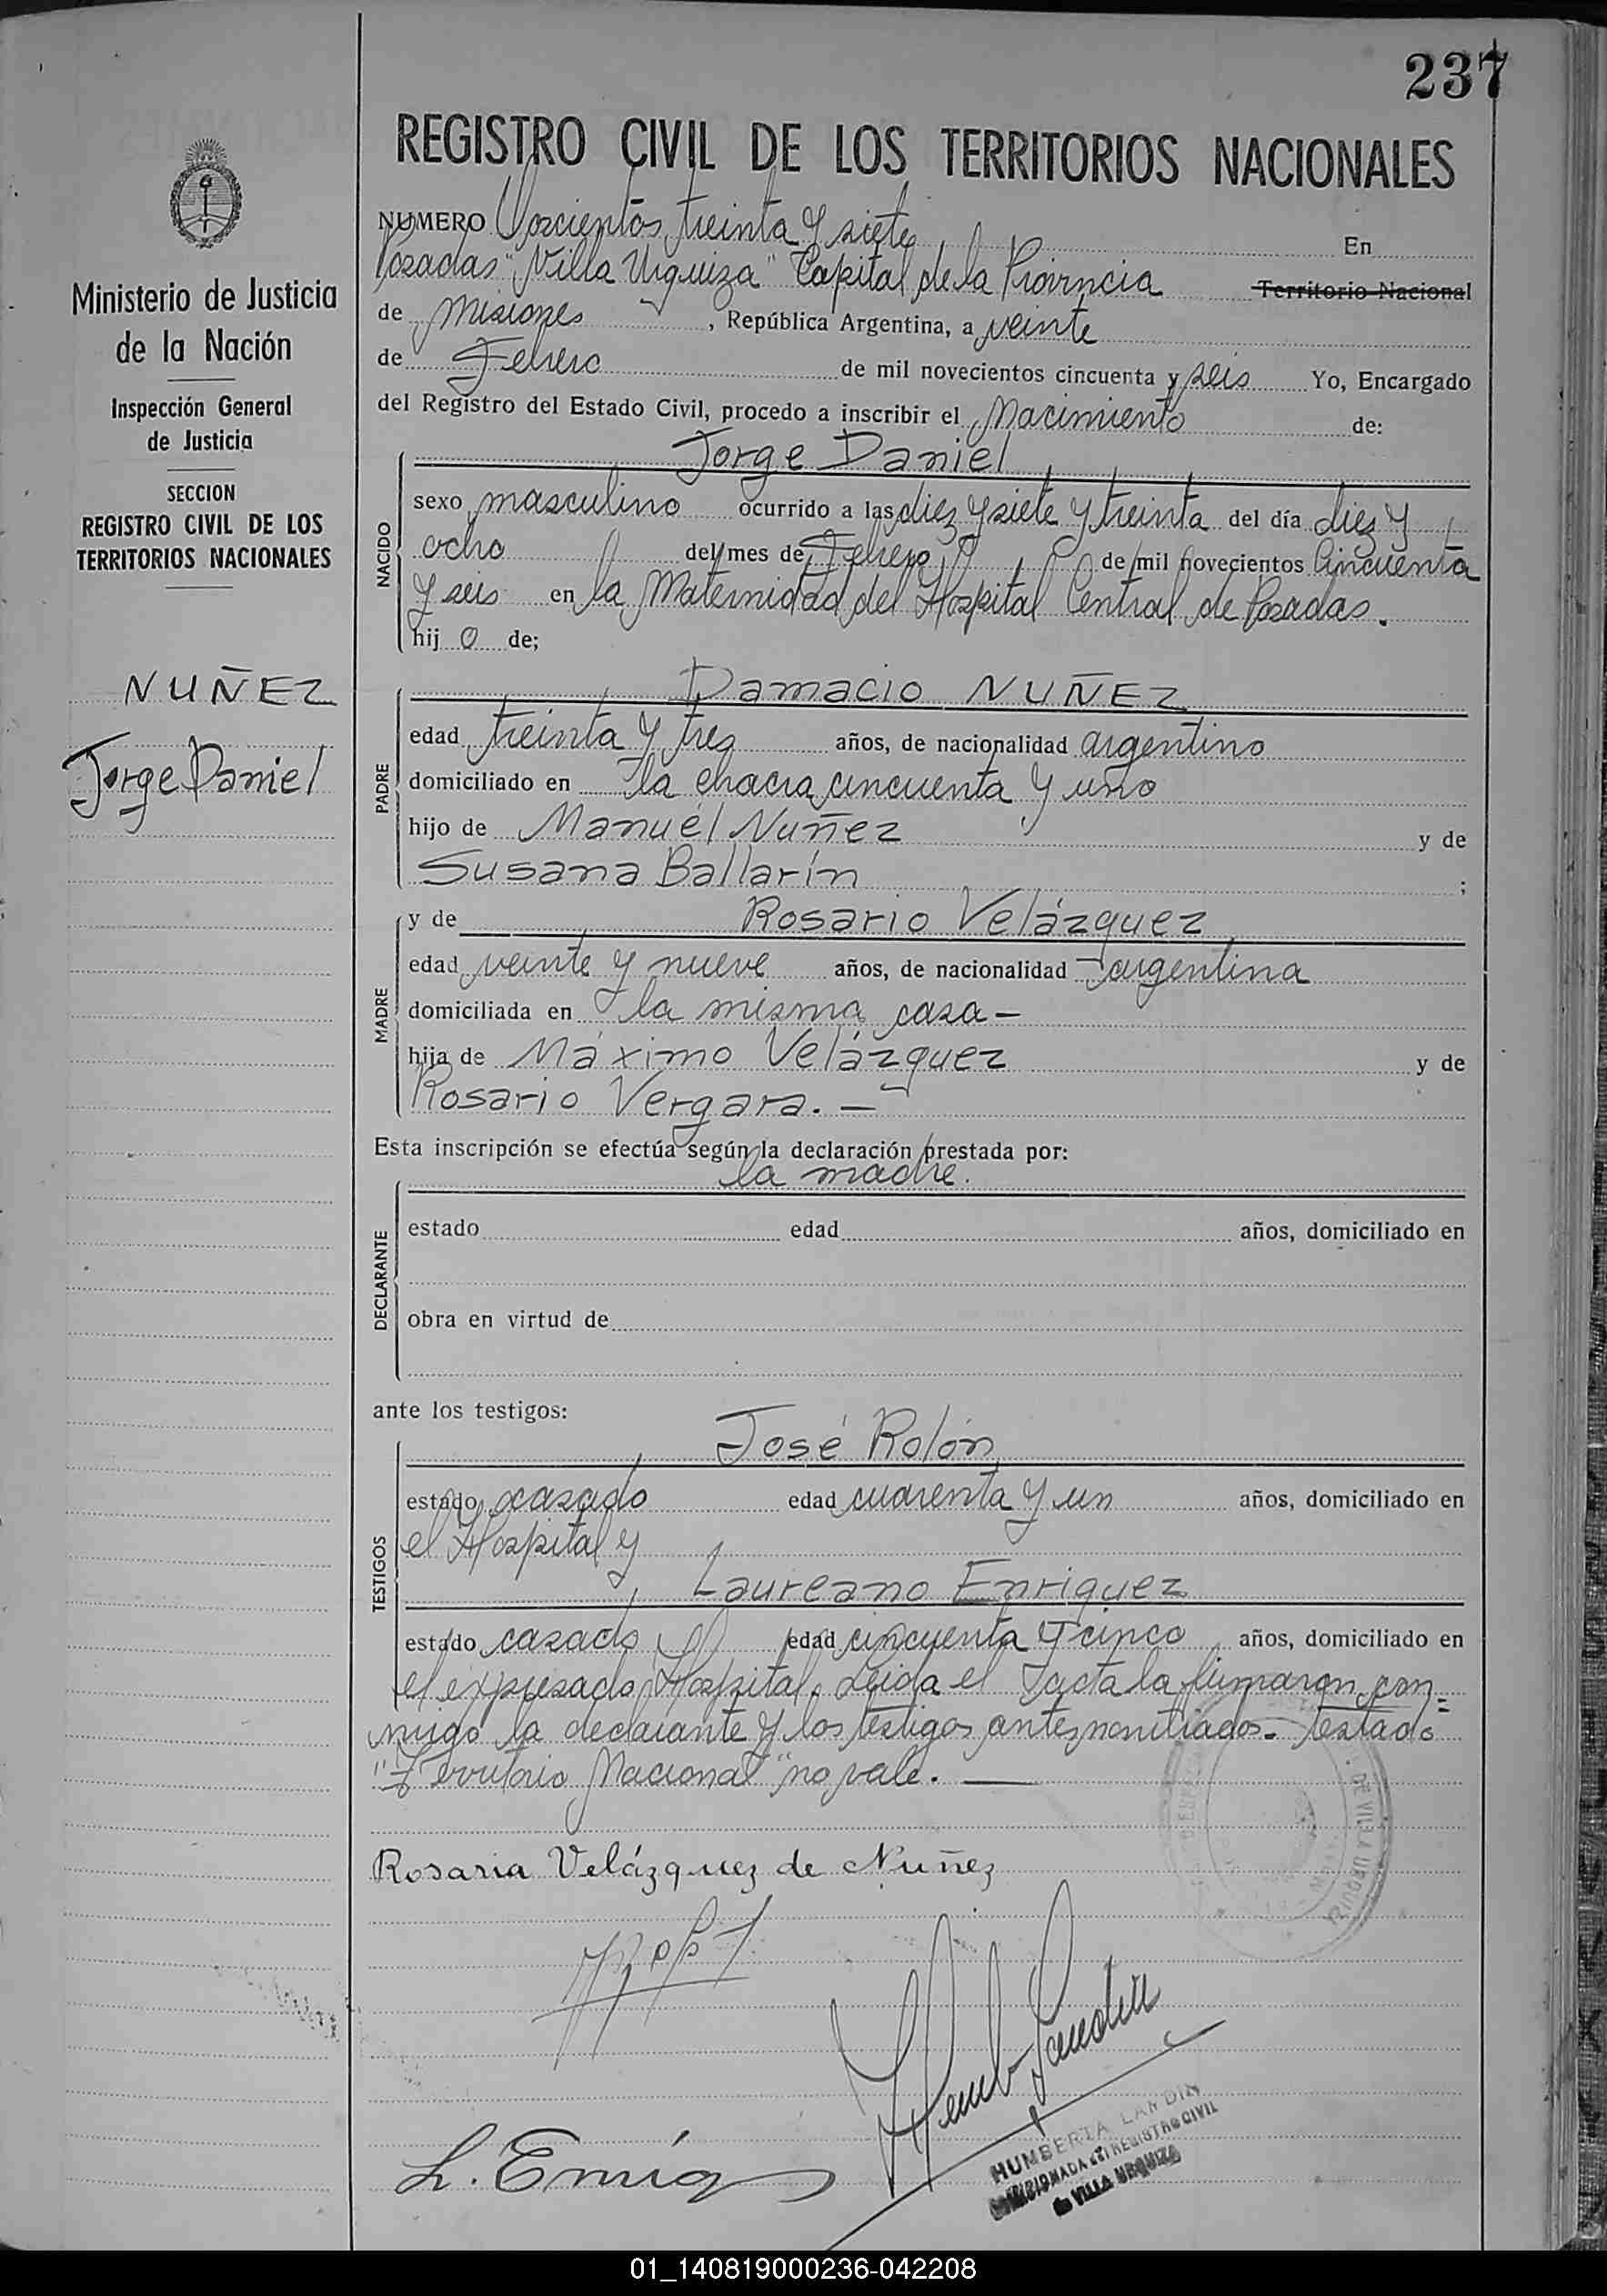 237
REGISTRO CIVIL DE LOS TERRITORIOS NACIONALES
Ministerio de Justicia
de la Nación
Inspección General
de Justicia
SECCION
REGISTRO CIVIL DE LOS
TERRITORIOS NACIONALES
NUÑEZ
Jorge Daniel
NUMERO Doscientos treinta y siete En
Posadas "Villa Urquiza" Capital de la Provincia Territorio Nacional
de Misiones, República Argentina, a veinte
de Febrero de mil novecientos cincuenta y seis Yo, Encargado
del Registro del Estado Civil, procedo a inscribir el Nacimiento de:
Jorge Daniel
NACIDO
sexo masculino ocurrido a las diez y siete y treinta del día diez y
ocho del mes de Febrero de mil novecientos Cincuenta
y seis en la Maternidad del Hospital Central de Posadas.
hij o de;
PADRE
Damacio NUÑEZ
edad treinta y tres años, de nacionalidad argentino
domiciliado en la chacra cincuenta y uno
hijo de Manuel Nuñez y de
Susana Ballarín ;
MADRE
y de Rosario Velázquez
edad veinte y nueve años, de nacionalidad argentina
domiciliada en la misma casa —
hija de Máximo Velázquez y de
Rosario Vergara. —
Esta inscripción se efectúa según la declaración prestada por:
la madre.
DECLARANTE
estado edad años, domiciliado en
obra en virtud de
ante los testigos:
TESTIGOS
José Rolón
estado casado edad cuarenta y un años, domiciliado en
el Hospital y
Laureano Enriquez
estado casado edad cincuenta y cinco años, domiciliado en
el expresado Hospital. Leida el acta la firmaron con=
migo la declarante y los testigos antes nombrados. Testado
"Territorio Nacional" no vale. —
Rosaria Velázquez de Nuñez
L. Enriq
HUMBERTA LANDIN
COMISIONADA del REGISTRO CIVIL
de VILLA URQUIZA
DE VILLA URQUIZA
01_140819000236-042208